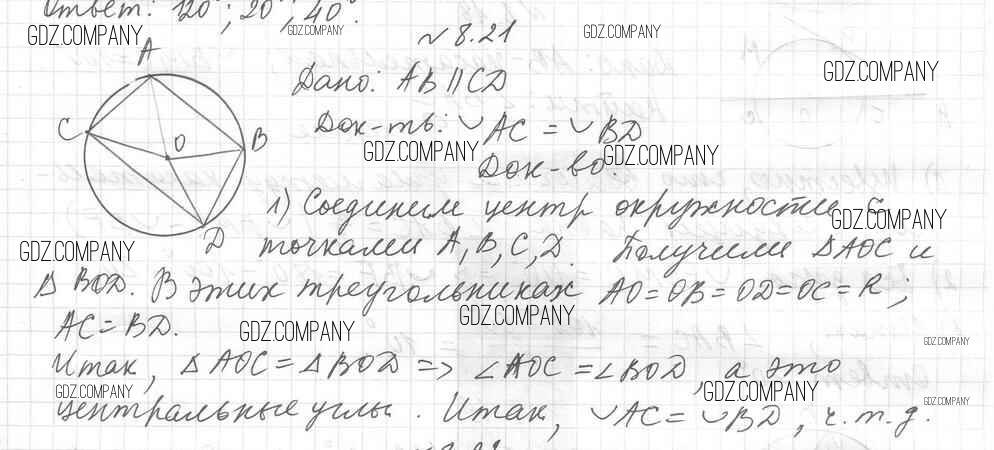 Ответ: 120°; 20°; 40°.
GDZ.COMPANY
GDZ.COMPANY
GDZ.COMPANY
№ 8.21
A
Дано: AB || CD
GDZ.COMPANY
C
B
O
D
Док-ть: ◡ AC = ◡ BD
GDZ.COMPANY
GDZ.COMPANY
Док-во:
1) Соединим центр окружности с
GDZ.COMPANY
точками A, B, C, D. Получили ΔAOC и
GDZ.COMPANY
Δ BOD. В этих треугольниках AO = OB = OD = OC = R;
GDZ.COMPANY
AC = BD.
GDZ.COMPANY
GDZ.COMPANY
Итак, Δ AOC = Δ BOD => ∠AOC = ∠BOD, а это
GDZ.COMPANY
GDZ.COMPANY
GDZ.COMPANY
центральные углы. Итак, ◡AC = ◡BD, ч.т.д.